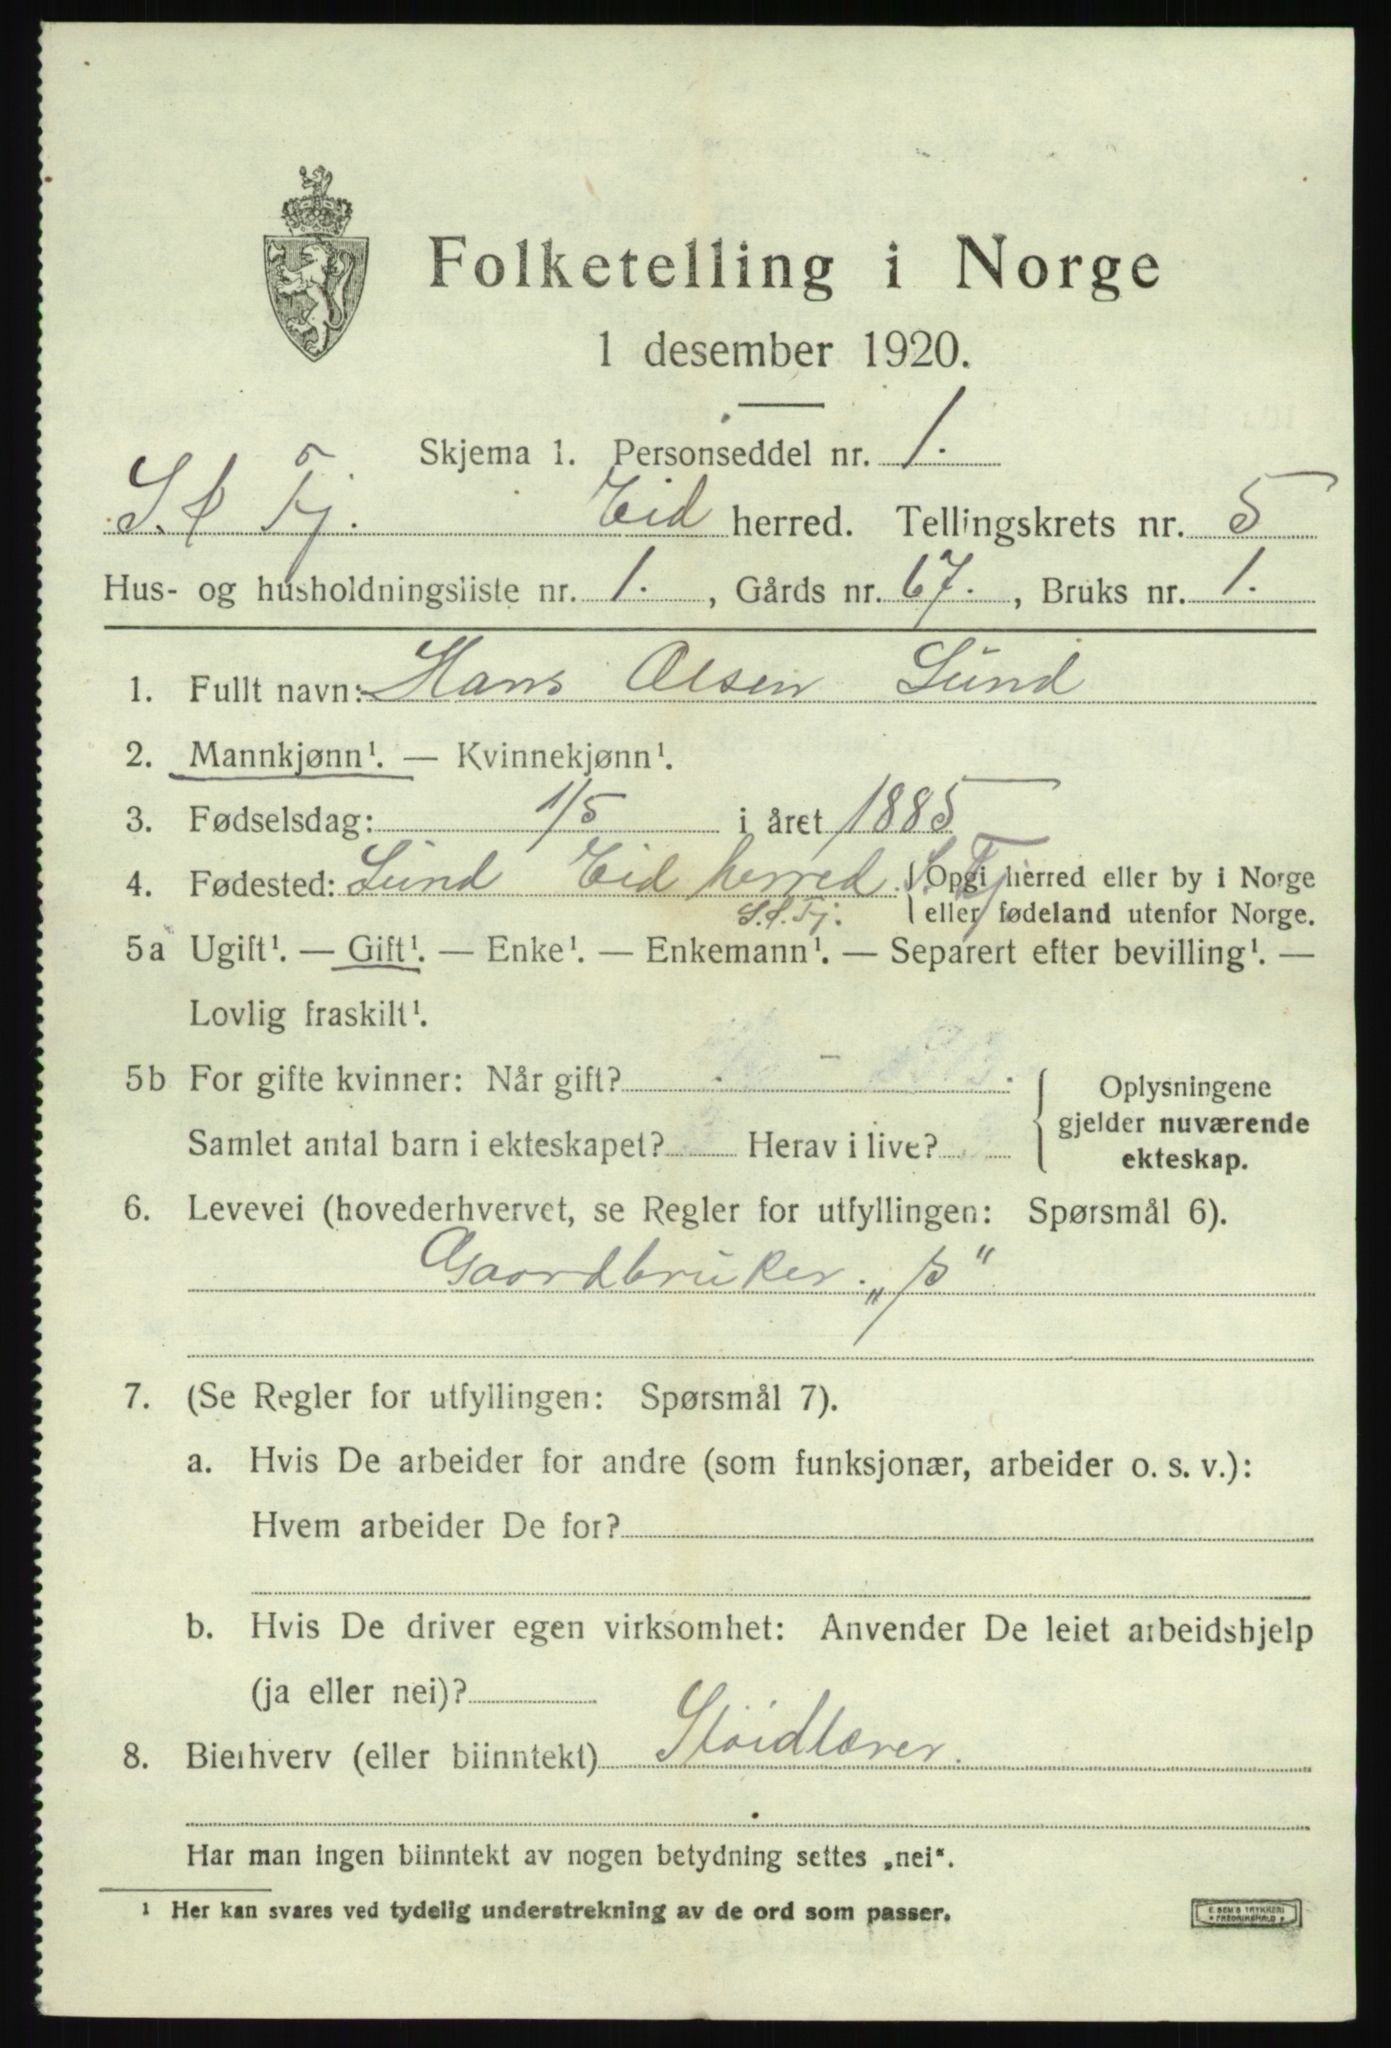 Folketelling i Norge
1 desember 1920.
Skjema 1. Personseddel nr. 1.
S. & Fj. Eid herred. Tellingskrets nr. 5
Hus- og husholdningsliste nr. 1. , Gårds nr. 67. , Bruks nr. 1.
1. Fullt navn: Hans Olsen Lund
2. Mannkjønn¹. — Kvinnekjønn¹.
3. Fødselsdag: 1/5 i året 1885
4. Fødested: Lund Eid herred S. Fj. { Opgi herred eller by i Norge
S. & Fj. eller fødeland utenfor Norge.
5a Ugift¹. — Gift¹. — Enke¹. — Enkemann¹. — Separert efter bevilling¹. —
Lovlig fraskilt¹.
5b For gifte kvinner: Når gift?
Samlet antal barn i ekteskapet? Herav i live?
Oplysningene
gjelder nuværende
ekteskap.
6. Levevei (hovederhvervet, se Regler for utfyllingen: Spørsmål 6).
Gaardbruker. „ß“
7. (Se Regler for utfyllingen: Spørsmål 7).
a. Hvis De arbeider for andre (som funksjonær, arbeider o. s. v.):
Hvem arbeider De for?
b. Hvis De driver egen virksomhet: Anvender De leiet arbeidshjelp
(ja eller nei)?
8. Bierhverv (eller biinntekt) Sløidlærer.
Har man ingen biinntekt av nogen betydning settes „nei“.
¹ Her kan svares ved tydelig understrekning av de ord som passer.
E. SEM'S TRYKKERI
FREDRIKSHALD